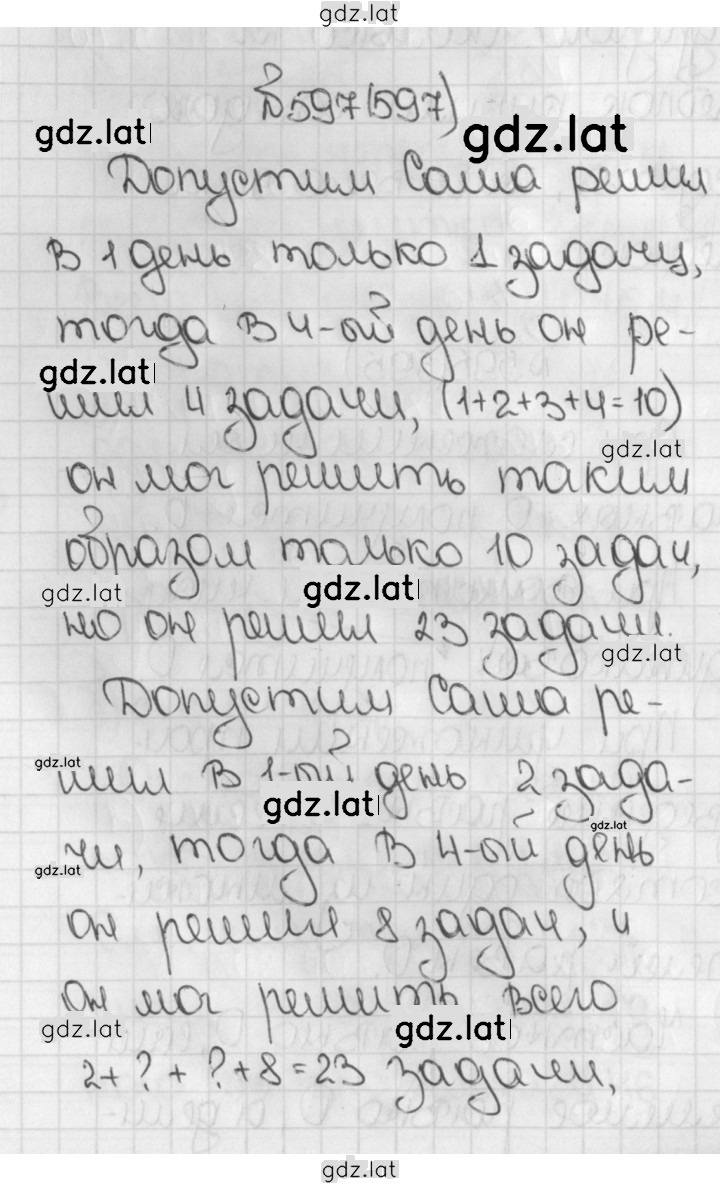 gdz.lat
№597(597)
gdz.lat gdz.lat
Допустим Саша решил
в 1 день только 1 задачу,
тогда в 4-ой день он ре-
gdz.lat
шил 4 задачи, (1+2+3+4=10)
gdz.lat
он мог решить таким
образом только 10 задач,
gdz.lat gdz.lat
но он решил 23 задачи.
gdz.lat
Допустим Саша ре-
gdz.lat
шил в 1-ый день 2 зада-
gdz.lat
gdz.lat
чи, тогда в 4-ой день
gdz.lat
он решил 8 задач, и
он мог решить всего
gdz.lat gdz.lat
2+?+?+8=23 задачи,
gdz.lat